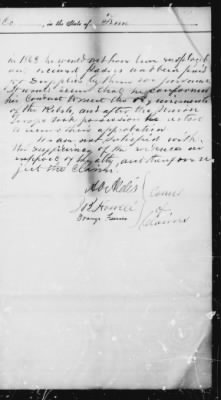 Co , in the State of Tenn
in 1863 he would not have been employed
as received and been paid
for supplies by them for forage
It would seem that he conformed
his conduct to meet the requirements
of the Rebels, and after the Union
troops took possession he acted
to secure their approbation
We are not satisfied with
the sufficiency of the evidence in
respect of loyalty, and therefore re
ject the claim.
A O Aldis
J B Howell
Orange Ferriss
Comrs
of
Claims